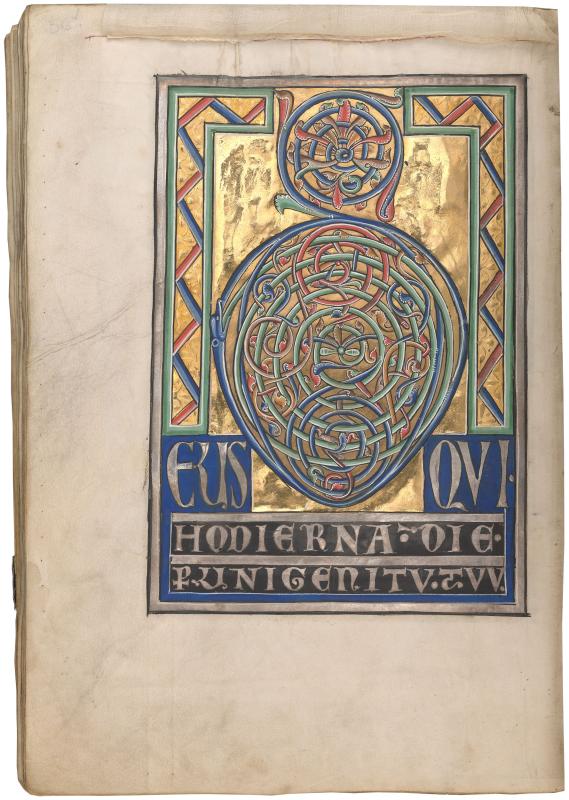 D
EUS QVI·
HODIERNA·DIE·
P·UNIGENITV·TVV·